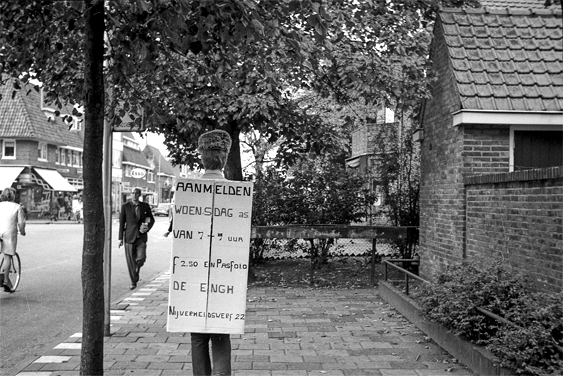 AANMELDEN
WOENSDAG a.s
VAN 7-9 UUR
f 2.50 EN PASFOTO
DE EINGH
NIJVERHEIDSWERF 22
ESSO